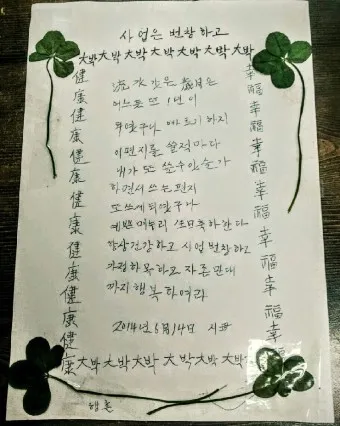 사업은 번창하고
大박 大박 大박 大박 大박 大박 大박
健康 健康 健康 健康 健康 健康 健康
流水 같은 歲月은
어느듯 또 1년이
되였구나 빠르기하지
이편지를 쓸적마다
내가 또 쓸수있슬가
하면서 쓰는편지
또쓰게되였구나
예쁜 며누리 生日축하한다
항상건강하고 사업번창하고
가정화목하고 자손만대
까지 행복하여라
2014年 6月 14日 시母
幸福 幸福 幸福 幸福 幸福 幸福 幸福
大박 大박 大박 大박 大박 大박